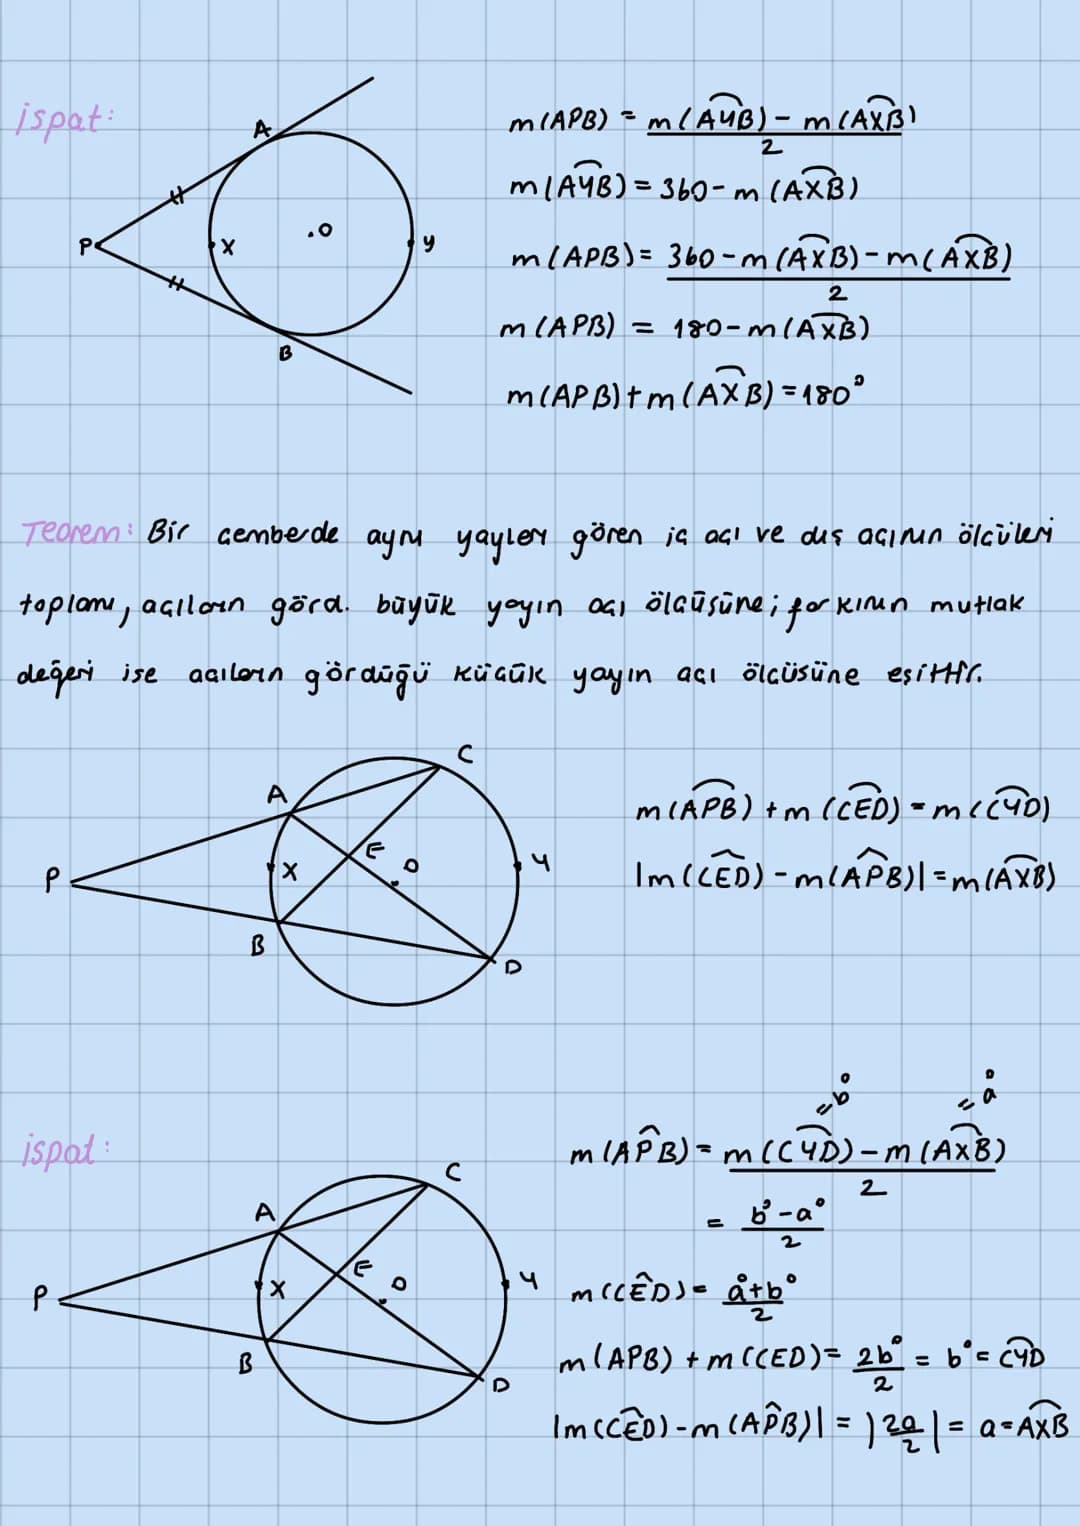 ispat:
A
P
X
.O
y
B
m(APB) = m(AYB) - m(AXB) / 2
m(AYB) = 360 - m(AXB)
m(APB) = 360 - m(AXB) - m(AXB) / 2
m(APB) = 180 - m(AXB)
m(APB) + m(AXB) = 180°
Teorem: Bir çemberde aynı yayları gören iç açı ve dış açının ölçüleri
toplamı, açıların görd. büyük yayın açı ölçüsüne; farkının mutlak
değeri ise açıların gördüğü küçük yayın açı ölçüsüne eşittir.
C
A
E
O
P
X
y
B
D
m(APB) + m(CED) = m(CYD)
|m(CED) - m(APB)| = m(AXB)
ispat:
C
A
E
O
P
X
y
B
D
= b° = a°
m(APB) = m(CYD) - m(AXB) / 2
= b° - a° / 2
m(CED) = a° + b° / 2
m(APB) + m(CED) = 2b° / 2 = b° = CYD
|m(CED) - m(APB)| = |2a / 2| = a = AXB